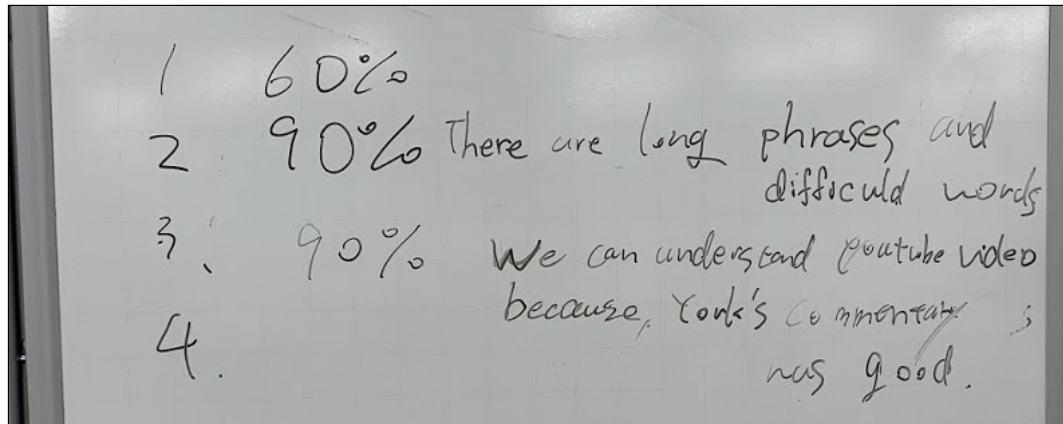 1 60%
2. 90% There are long phrases and
difficuld words
3. 90% We can understand youtube video
because, York's commentary
was good.
4.